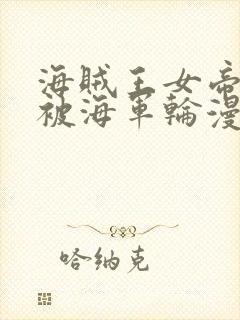 海賊王女帝
被海軍輪漫
哈纳克